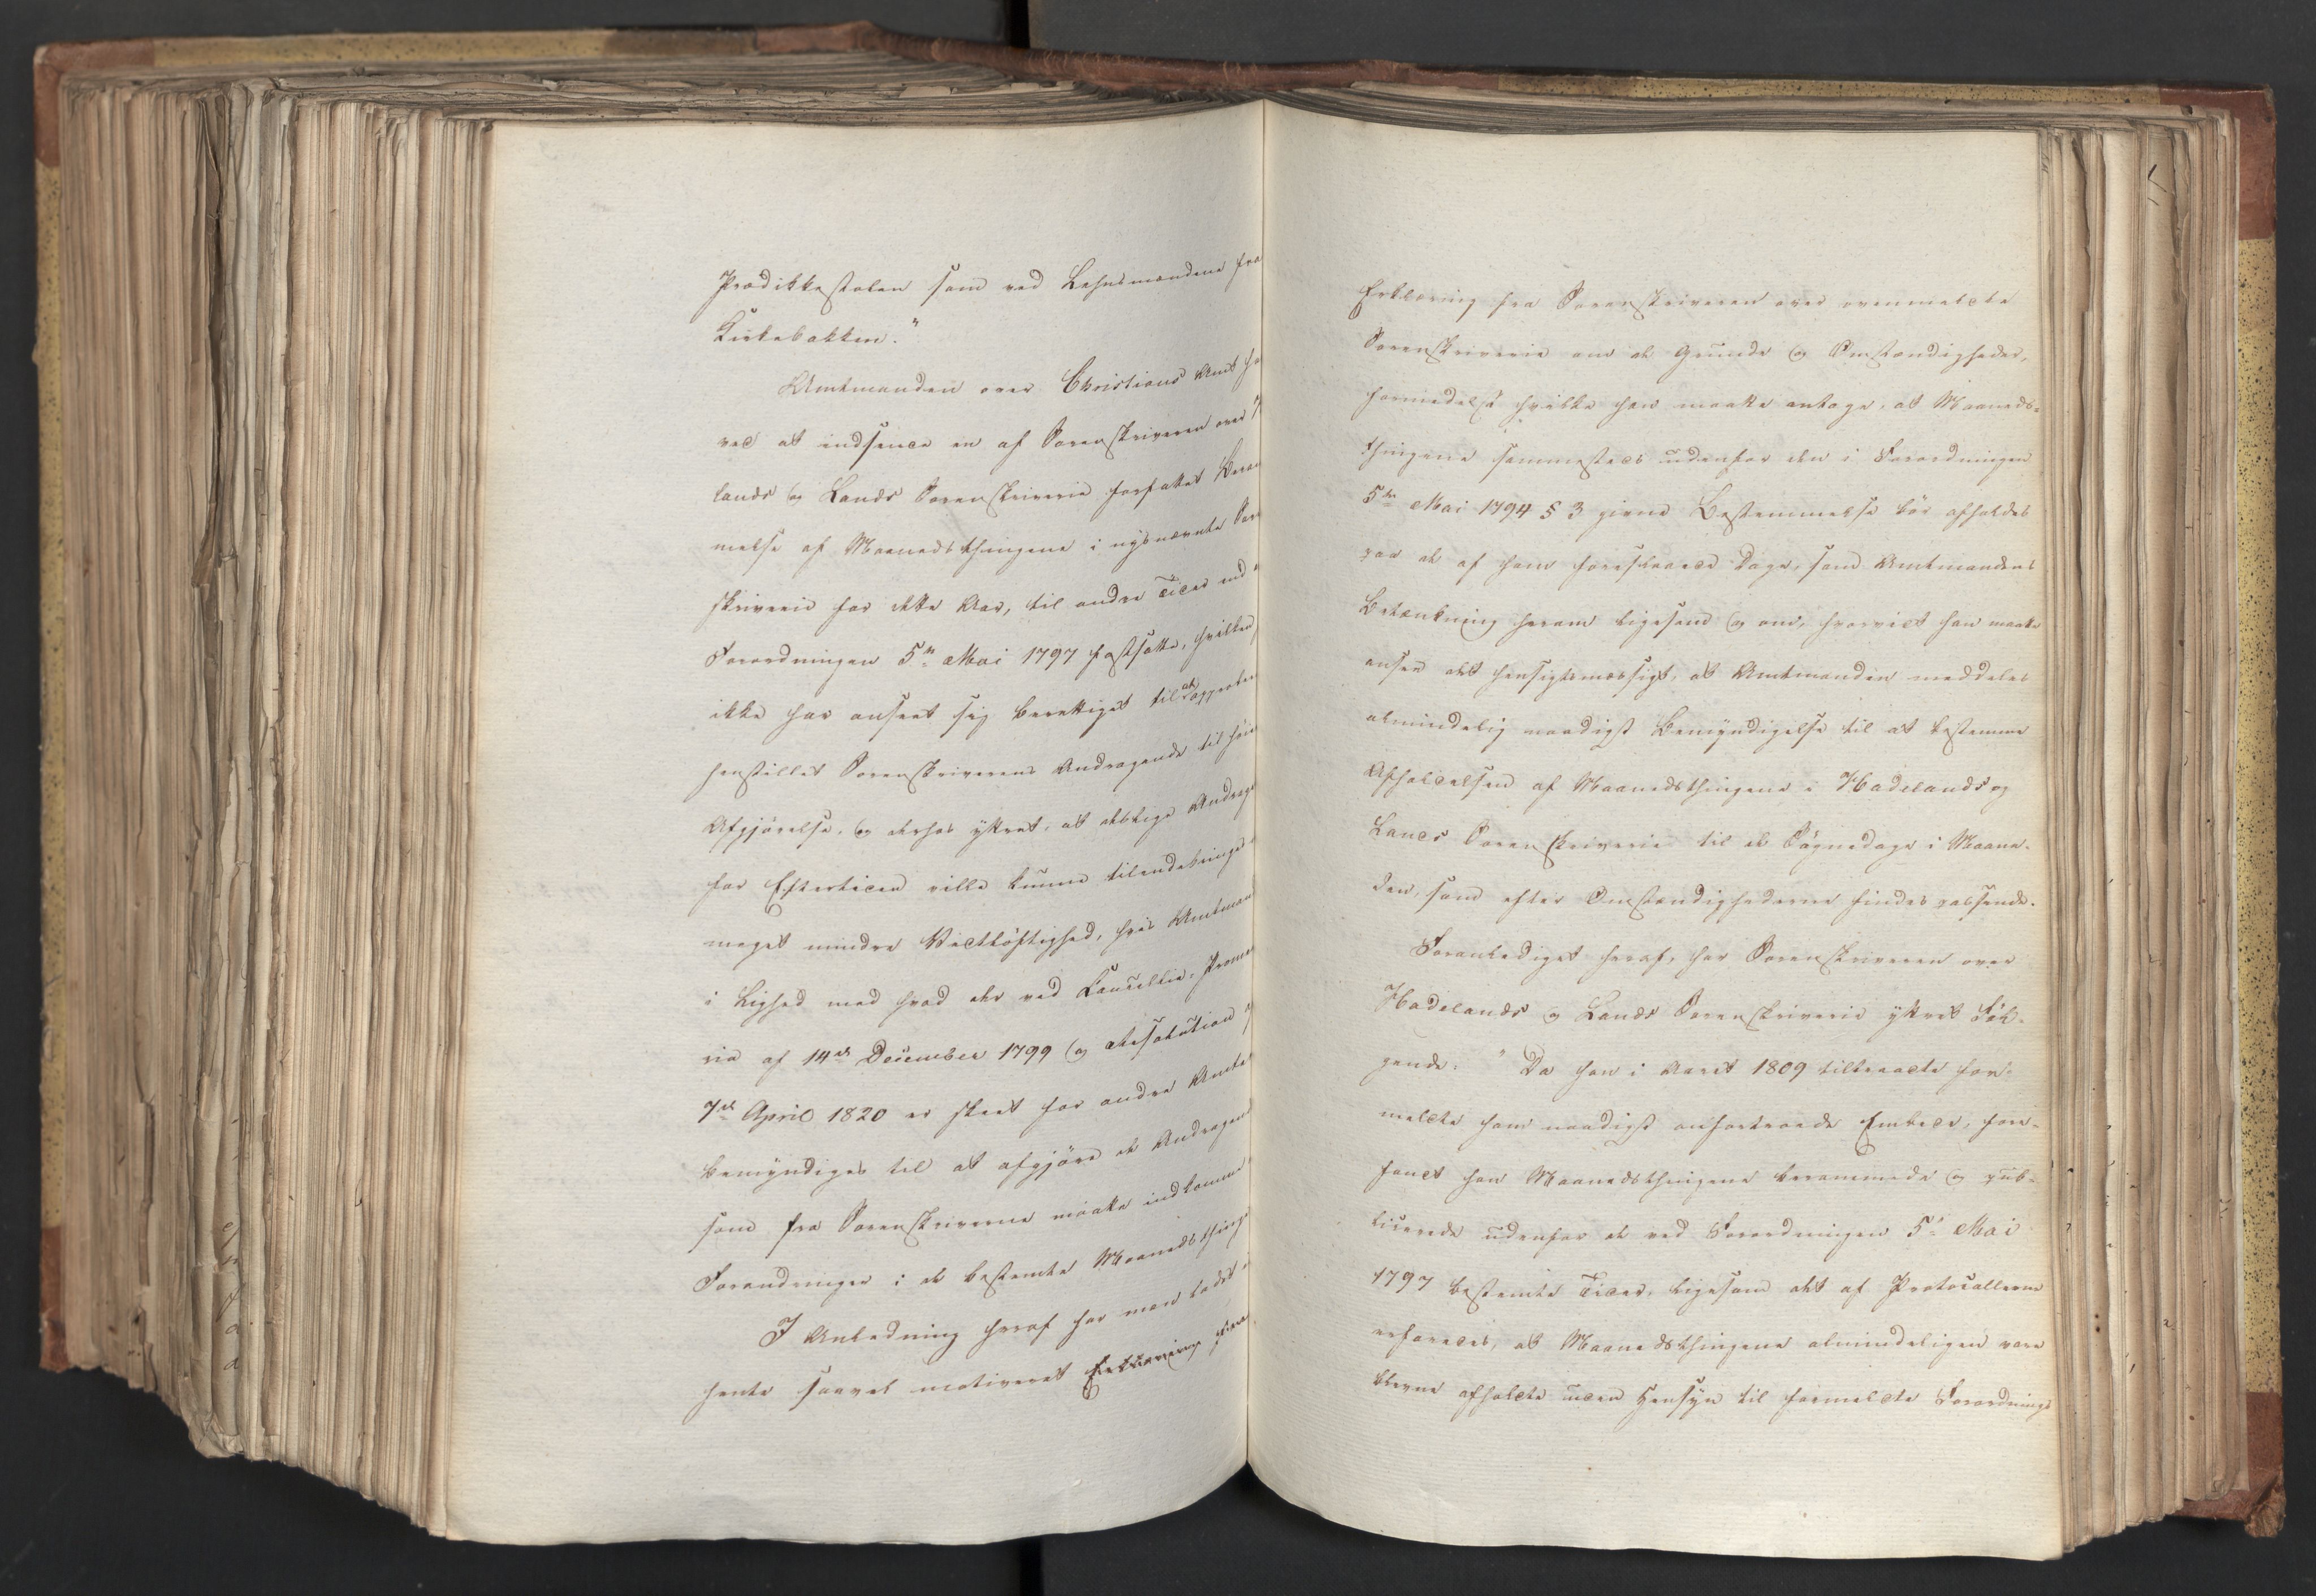 Prædikkestolen som ved Lehnsmændene fra
Kirkebakken."
Amtmanden over Christians Amt ha
ved at indsende en af Sorenskriveren over
lands og Lands Sorenskriverie forfattet Beram
melse af Maanedsthingene i nysnævnte Soren
skriverie for dette Aar, til andre Tider end
Forordningen 5te Mai 1797 fastsatte, hvilken
ikke har anseet sig berettiget til at approbere
henstillet Sorenskriverens Andragende til høi
Afgjørelse, og derhos yttret, at deslige Andrag
for Eftertiden ville kunne tilendebringes
meget mindre Vidtløftighed, hvis Amtman
i Lighed med hvad der ved Cancellie-Prome
ria af 14de December 1799 og Resolution
7de April 1820 er skeet for andre Amter
bemyndiges til at afgjøre de Andragen
som fra Sorenskriverne maatte indkomme
Forandringer i de bestemte Maanedsthinge
I Anledning heraf har man ladet
hente saavel motiveret Erklæring
Erklæring fra Sorenskriveren over ovenmeldte
Sorenskriverie om de Grunde og Omstændigheder,
formedelst hvilke han maatte antage, at Maaneds-
thingene sammesteds udenfor den i Forordningen
5te Mai 1794 § 3 givne Bestemmelse bør afholdes
paa de af ham foreslaaede Dage, som Amtmandens
Betænkning herom ligesom og om, hvorvidt han maatte
ansee det hensigtsmæssigt, at Amtmanden meddeles
almindelig naadigst Bemyndigelse til at bestemme
Afholdelsen af Maanedsthingene i Hadelands og
Lands Sorenskriverie til de Søgnedage i Maane-
den, som efter Omstændighederne findes passende.
Foranlediget heraf, har Sorenskriveren over
Hadelands og Lands Sorenskriverie yttret Føl-
gende: "Da han i Aaret 1809 tiltraadte for-
meldte ham naadigst anfortroede Embede, fore-
fandt han Maanedsthingene berammede og pub-
licerede udenfor de ved Forordningen 5te Mai
1797 bestemte Tider, ligesom det af Protocollerne
erfaredes, at Maanedsthingene almindeligen vare
blevne afholdte uden Hensyn til formeldte Forordnings